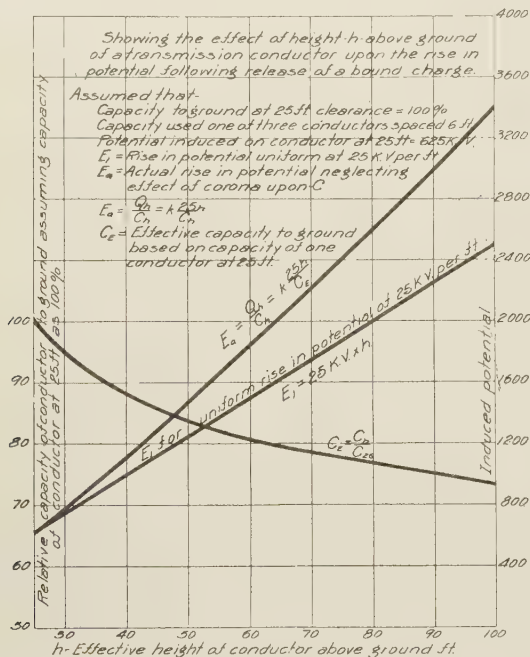 Showing the effect of height-h-above ground
of a transmission conductor upon the rise in
potential following release of a bound charge.
Assumed that-
Capacity to ground at 25 ft clearance = 100%
Capacity used one of three conductors spaced 6 ft.
Potential induced on conductor at 25ft = 625 K.V
E₁ = Rise in potential uniform at 25 K.V. per ft
Eₐ = Actual rise in potential neglecting
effect of corona upon C
Eₐ = Qₕ/Cₕ = k 25h/Cₕ
C₂ = Effective capacity to ground
based on capacity of one
conductor at 25 ft.
4000
3600
3200
2800
2400
2000
1600
1200
800
400
Induced potential
100
90
80
70
60
50
Relative capacity of conductor to ground assuming capacity
of conductor at 25 ft as 100%
Eₐ = Qₕ/Cₕ = k 25h/C₂
E₁ for uniform rise in potential of 25 K.V. per ft.
E₁ = 25 K.V. x h
30
40
50
60
70
80
90
100
h-Effective height of conductor above ground ft.